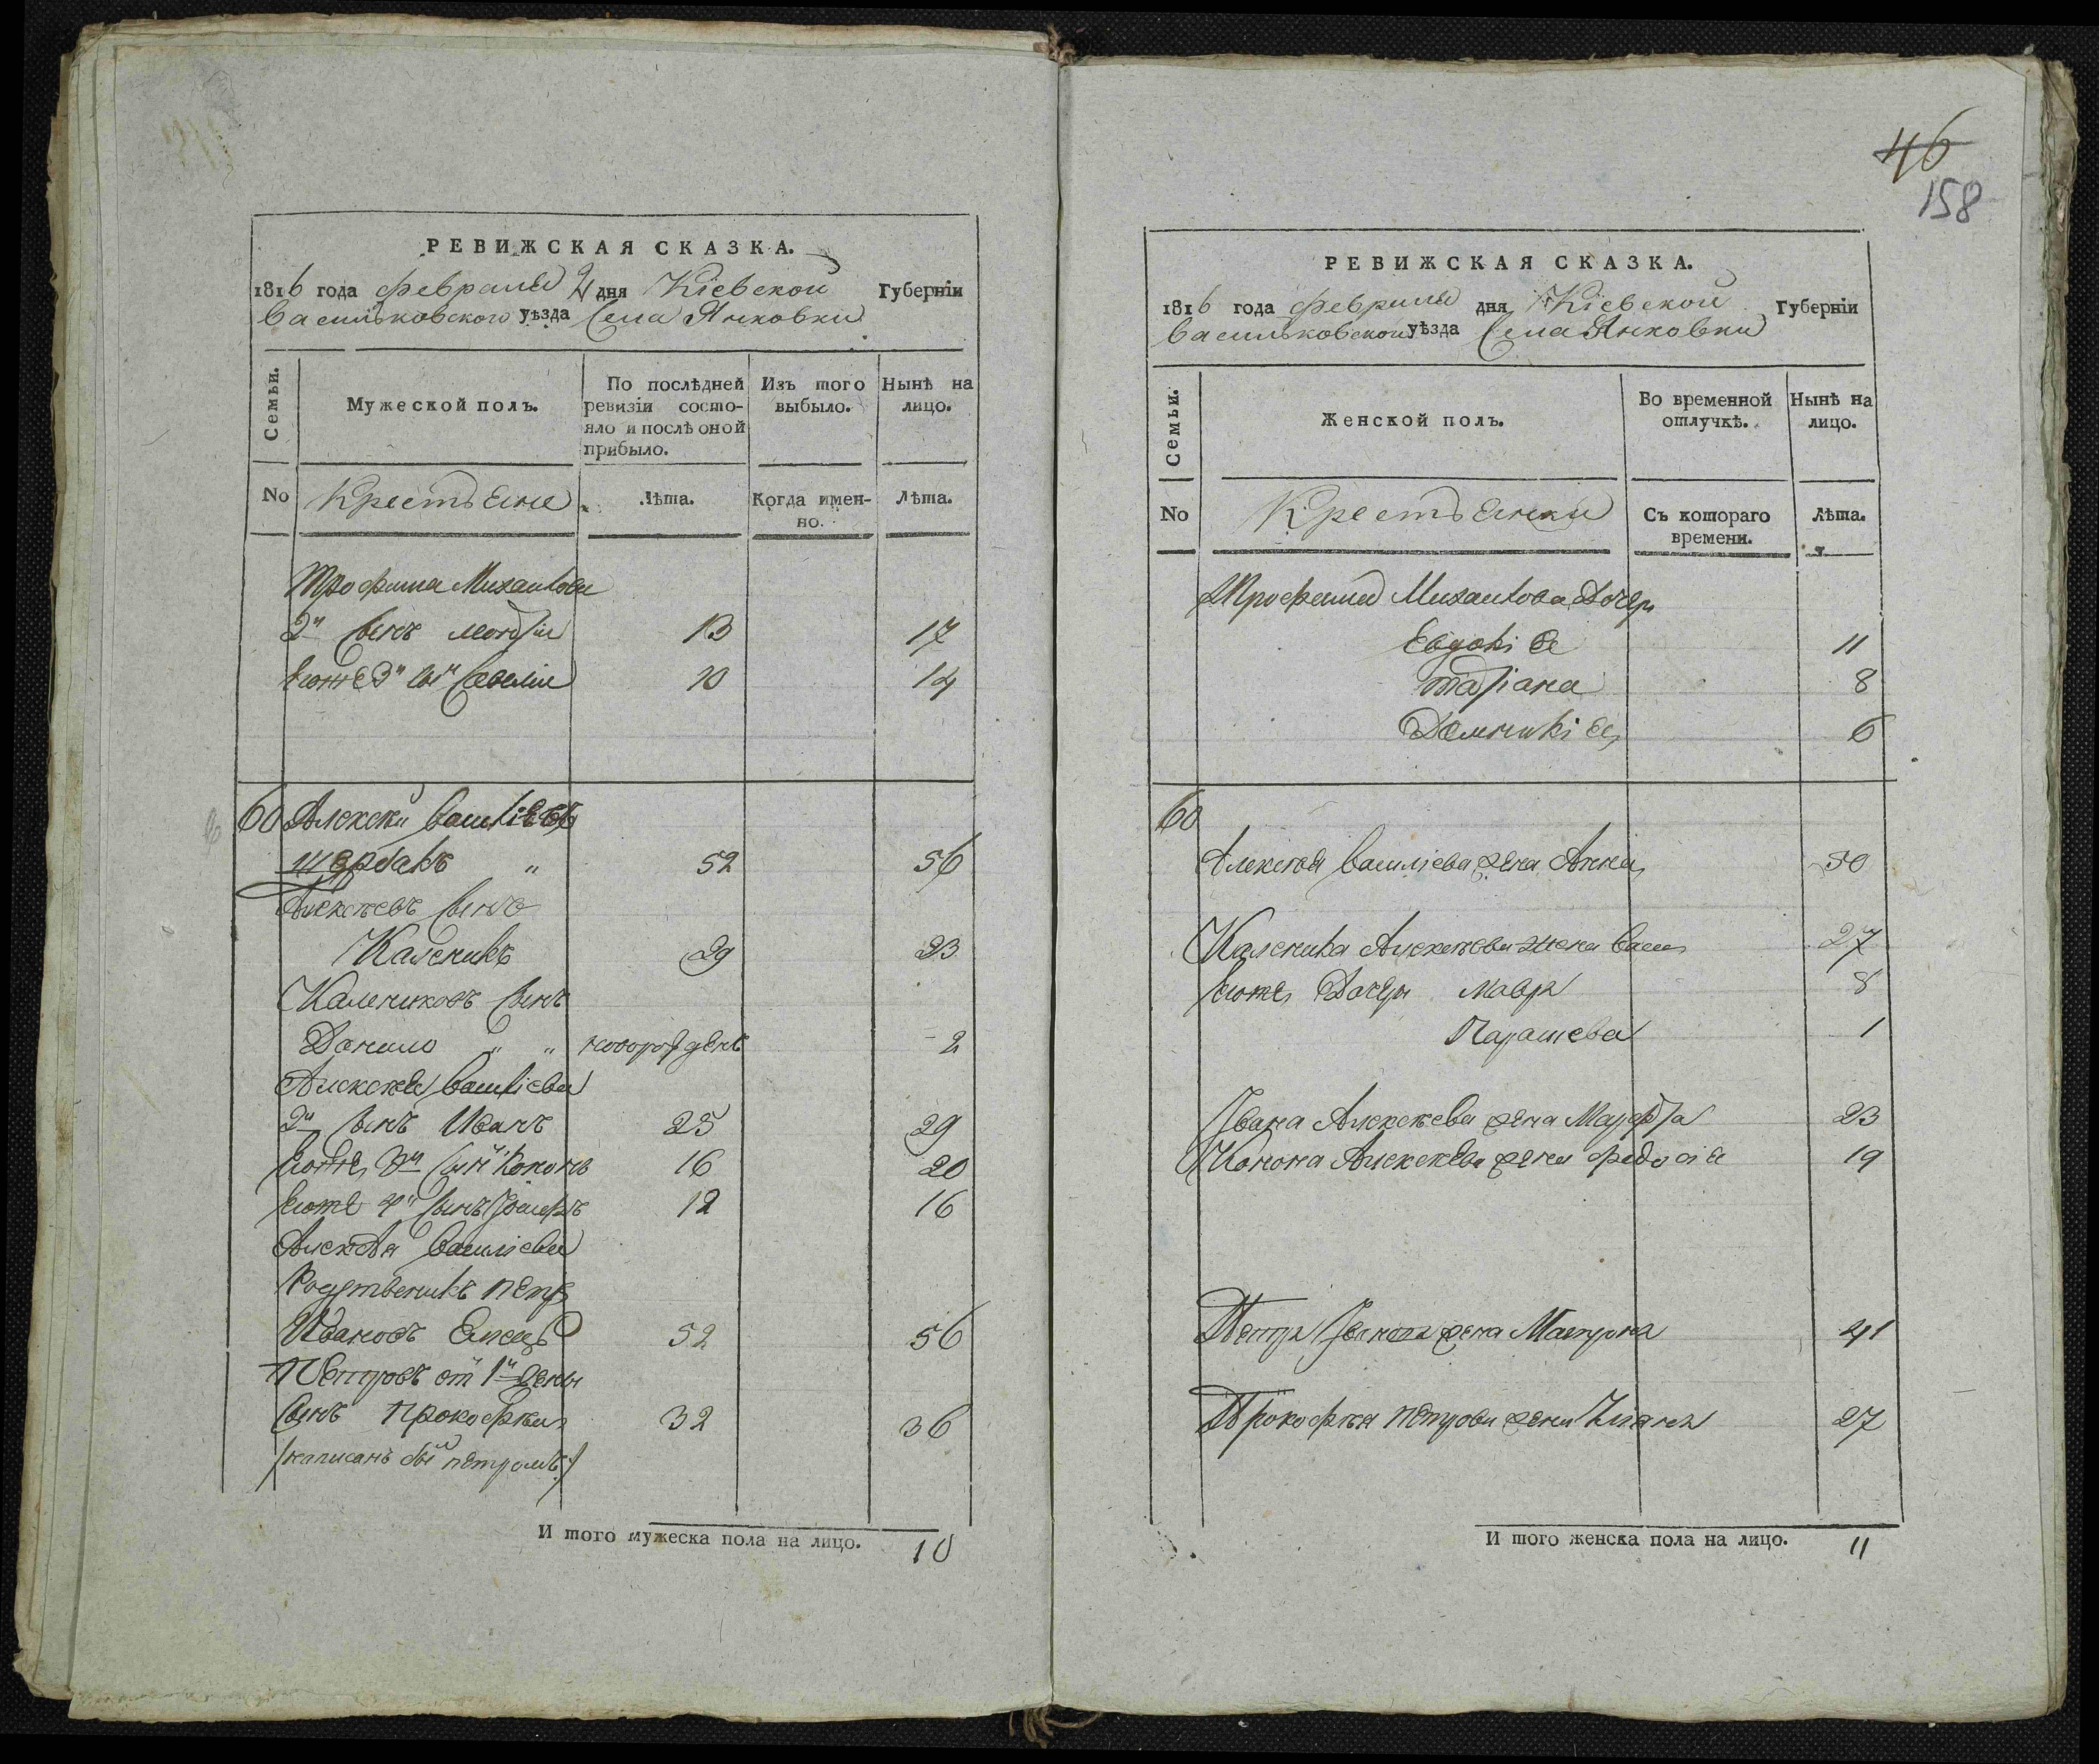 РЕВИЖСКАЯ СКАЗКА.
1816 года февраля 2 дня Кіевской Губерніи
Васильковского уѣзда Села Янковки
Семьи.
Мужеской полъ.
По послѣдней ревизіи состояло и послѣ оной прибыло.
Изъ того выбыло.
Нынѣ на лицо.
No
Крестьяне
Лѣта.
Когда именно.
Лѣта.
Трофима Михайлова
2й сынъ 13 17
Егоже 3й сынъ Савелій 10 14
60 Алексѣй Васіліевъ
Щербакъ " 52 56
Алексѣевъ сынъ
Каленикъ 29 23
Калениковъ сынъ
Данило " " новорожденъ 2
Алексѣя Васіліева
2й сынъ Иванъ 25 29
Егоже 3й сынъ Кононъ 16 20
Егоже 4й сынъ 12 16
Алексѣя Василіева
Родственикъ Петръ
Ивановъ 52 56
Петровъ от 1й жены
сынъ Прокофѣй 32 36
/написанъ бы петромъ/
И того мужеска пола на лицо. 10
46
158
РЕВИЖСКАЯ СКАЗКА.
1816 года февраля дня Кіевской Губерніи
Васильковской уѣзда Села Янковки
Семьи.
Женской полъ.
Во временной отлучкѣ.
Нынѣ на лицо.
No
Крестьянки
Съ котораго времени.
Лѣта.
Трофима Михайлова Дочери
Евдокія 11
Татіана 8
Домникія 6
60
Алексѣя Василіева жена Анна 50
Каленика Алексѣева жена 27
Егоже Дочери Мавра 8
Парасцева 1
Івана Алексѣева жена Марфта 23
Конона Алексѣева жена Федосія 19
Петра Іванова жена Матрона 41
Прокофѣя Петрова жена Уліана 27
И того женска пола на лицо. 11